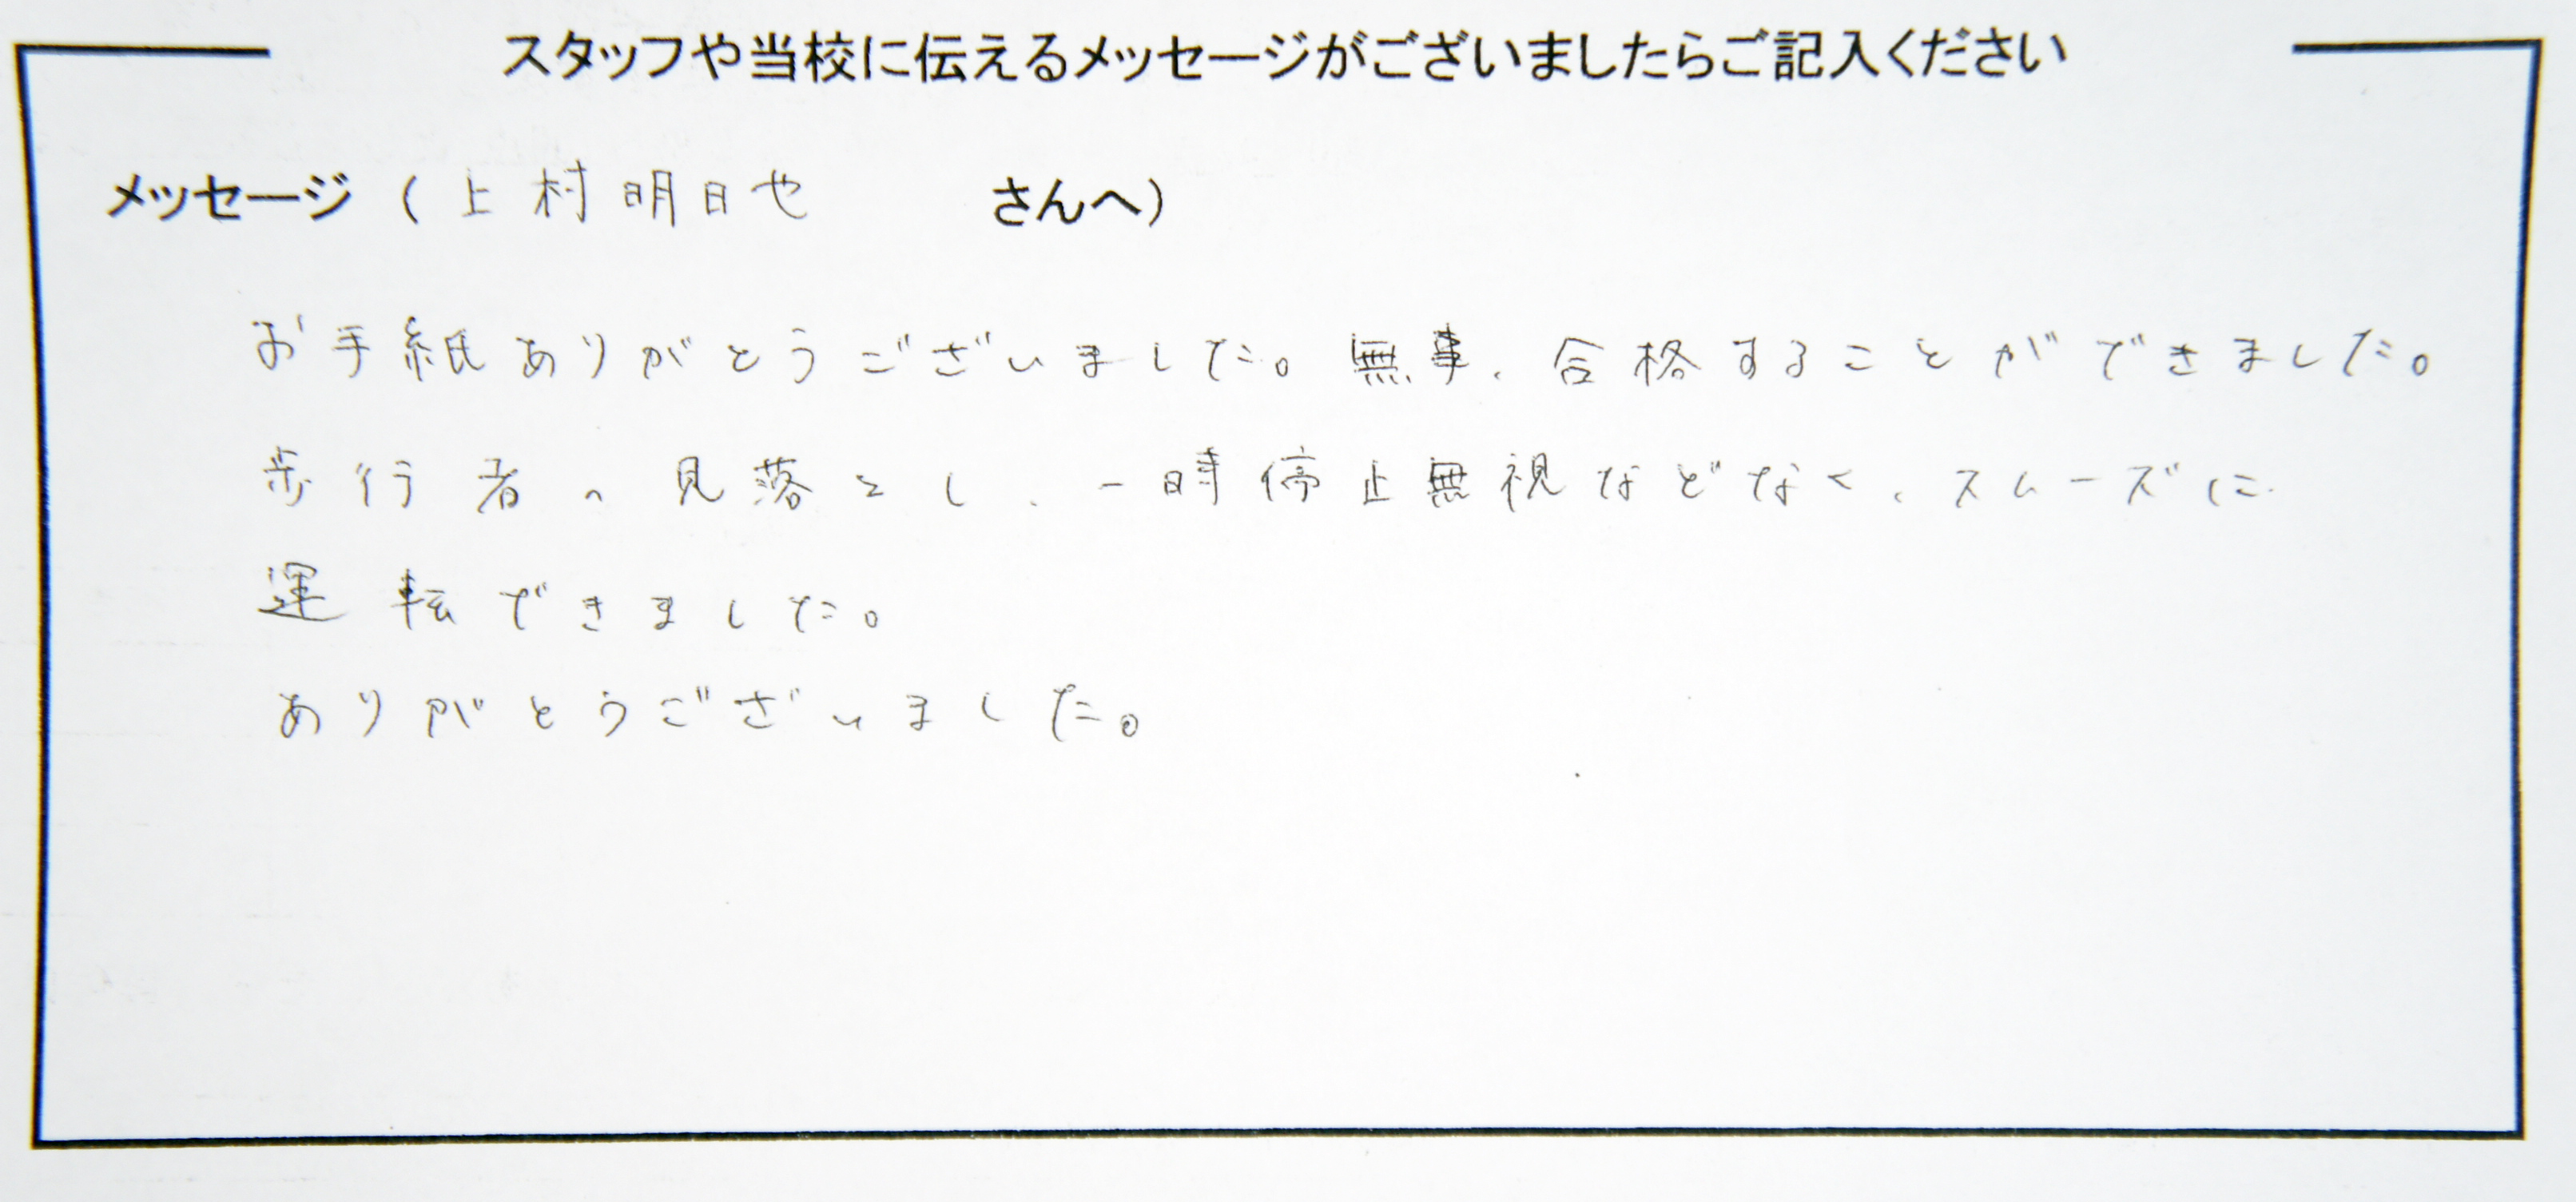 スタッフや当校に伝えるメッセージがございましたらご記入ください
メッセージ（上村明日也 さんへ）
お手紙ありがとうございました。無事、合格することができました。
歩行者の見落とし、一時停止無視などなく、スムーズに
運転できました。
ありがとうございました。